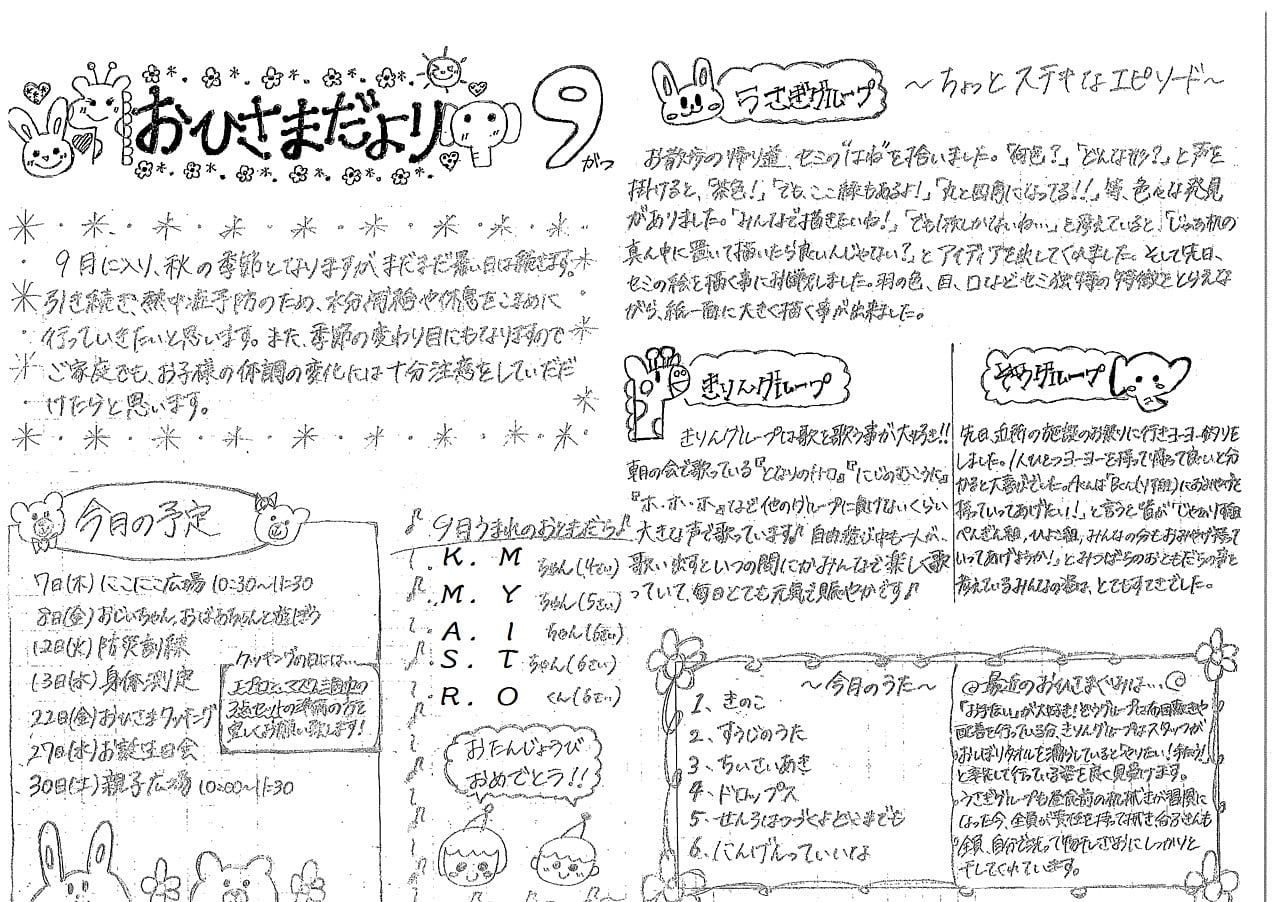 おひさまだより
9がつ
9月に入り、秋の季節となりますがまだまだ暑い日は続きます。
引き続き、熱中症予防のため、水分補給や休息をこまめに
行っていきたいと思います。また、季節の変わり目にもなりますので
ご家庭でも、お子様の体調の変化には十分注意をしていただ
けたらと思います。
今月の予定
7日(木) にこにこ広場 10:30〜11:30
8日(金) おじいちゃん、おばあちゃんと遊ぼう
12日(火) 防災訓練
13日(水) 身体測定
22日(金) おひさまクッキング
27日(水) お誕生日会
30日(土) 親子広場 10:00〜11:30
クッキングの日には…
エプロン、マスク、三角巾の
3点セットの準備の方を
宜しくお願い致します!
9月うまれのおともだち♪
K. M ちゃん(4さい)
M. Y ちゃん(5さい)
A. I ちゃん(6さい)
S. T ちゃん(6さい)
R. O くん(6さい)
おたんじょうび
おめでとう!!
うさぎグループ
〜ちょっとステキなエピソード〜
お散歩の帰り道、セミの"はね"を拾いました。「何色?」「どんな形?」と声を
掛けると、「茶色!」「でも、ここ緑もあるよ!」「丸と四角になってる!!」等、色々な発見
がありました。「みんなで描きたいね!」「でも1枚しかないね…」と考えていると、「じゃあ机の
真ん中に置いて描いたら良いんじゃない?」とアイディアを出してくれました。そして先日、
セミの絵を描く事に挑戦しました。羽の色、目、口などセミ独特の特徴をとらえな
がら、紙一面に大きく描く事が出来ました。
きりんグループ
きりんグループは歌を歌う事が大好き!!
朝の会で歌っている『となりのトトロ』『にじのむこうに』
『ホ・ホ・ホ』など他のグループに負けないくらい
大きな声で歌っています♪ 自由遊び中も一人が、
歌い出すといつの間にかみんなで楽しく歌
っていて、毎日とても元気で賑やかです♪
ぞうグループ
先日、近所の施設のお祭りに行きヨーヨー釣りを
しました。1人ひとつヨーヨーを持って帰って良いと分
かると大喜びでした。Aくんは「Bくん(りす組)におみやげを
持っていってあげたい!」と言うと皆が「じゃありす組、
ぺんぎん組、ひよこ組、みんなの分もおみやげ持って
いってあげようか!」とみつばちのおともだちの事を
考えているみんなの姿は、とてもすてきでした。
〜今月のうた〜
1、きのこ
2、すうじのうた
3、ちいさいあき
4、ドロップス
5、せんろはつづくよどこまでも
6、にんげんっていいな
最近のおひさまぐみは…
「お手伝い」が大好き!ぞうグループは布団敷きや
配膳を行っている分、きりんグループはスタッフが
おしぼりタオルを濡らしているとやりたい!手伝う!
と率先して行っている姿を良く見受けます。
うさぎグループも昼食前の机拭きが習慣に
なった今、全員が責任を持って拭き、台ふきんも
全員、自分で洗って物干しざおにしっかりと
干してくれています。